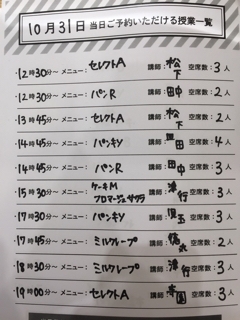 10月31日 当日ご予約いただける授業一覧
・12時30分～ メニュー： セレクトA 講師：松下 空席数：3人
・12時30分～ メニュー： パンR 講師：田中 空席数：2人
・13時45分～ メニュー： セレクトA 講師：松下 空席数：2人
・14時45分～ メニュー： パンキソ 講師：黒田 空席数：4人
・14時45分～ メニュー： パンR 講師：田中 空席数：3人
・15時30分～ メニュー： ケーキM フロマージュサクラ 講師：津行 空席数：3人
・17時30分～ メニュー： パンキソ 講師：児玉 空席数：3人
・17時45分～ メニュー： ミルクレープ 講師： 空席数：2人
・18時30分～ メニュー： ミルクレープ 講師：津行 空席数：3人
・19時00分～ メニュー： セレクトA 講師： 空席数：3人